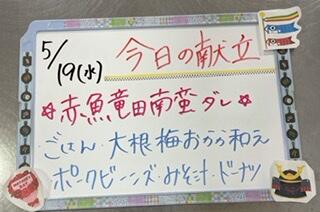 5/19(水)
今日の献立
☆赤魚竜田南蛮ダレ☆
・ごはん・大根梅おかか和え
・ポークビーンズ・みそ汁・ドーナツ